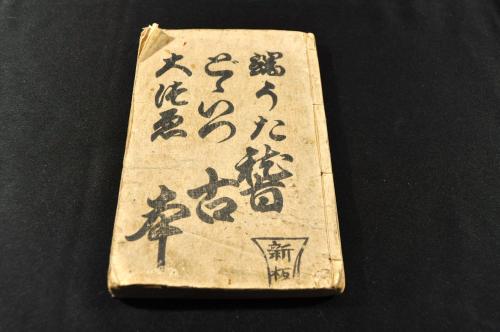 端うた稽
どゝいつ 古
大津ゑ 本
新板